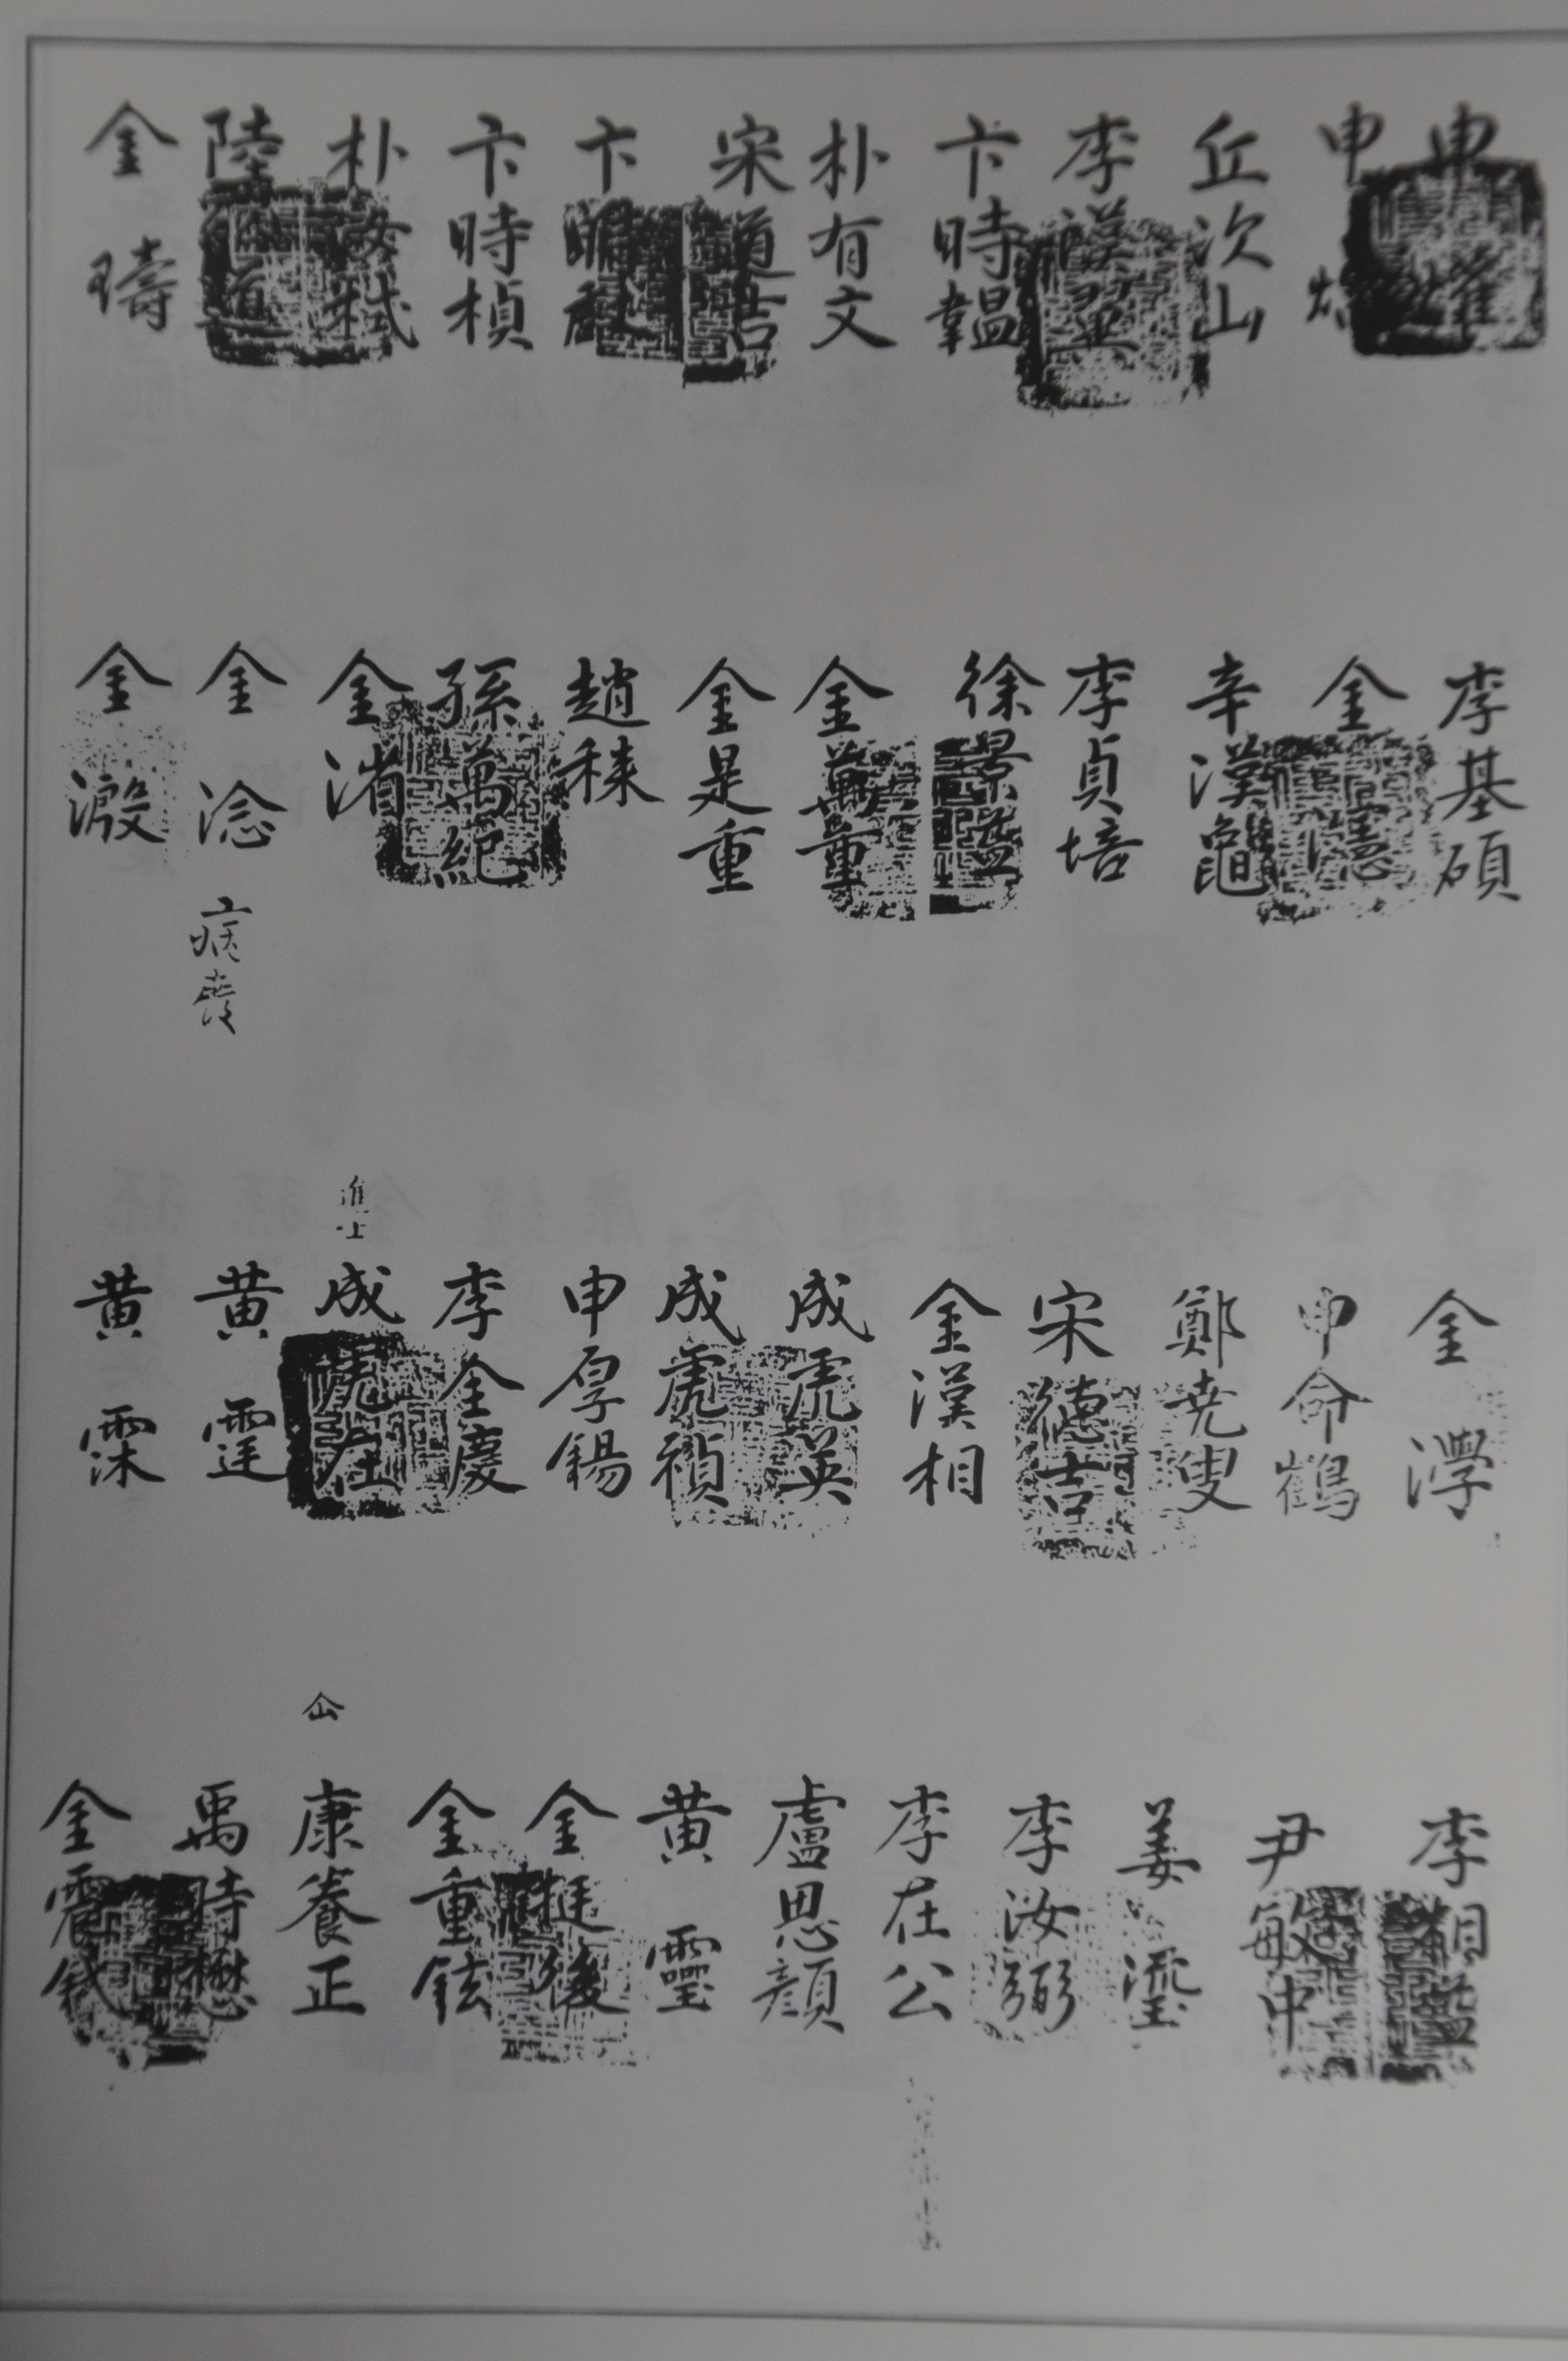 申
申
丘次山
李漢
卞時韞
朴有文
宋道吉
卞時
卞時楨
朴汝栻
陸
金璹
李基碩
金憲
辛漢龜
李貞培
徐景益
金萬重
金是重
趙
孫萬紀
金渚
金淰
病喪
金瀫
金澩
申命鶴
鄭堯叟
宋德吉
金漢相
成虎英
成虎禎
申厚錫
李全慶
進士
成虎
黃霆
黃霂
李相益
尹敏中
姜
李汝弼
李在公
盧思顔
黃靈
金後
金重鉉
仚
康養正
禹時懋
金震